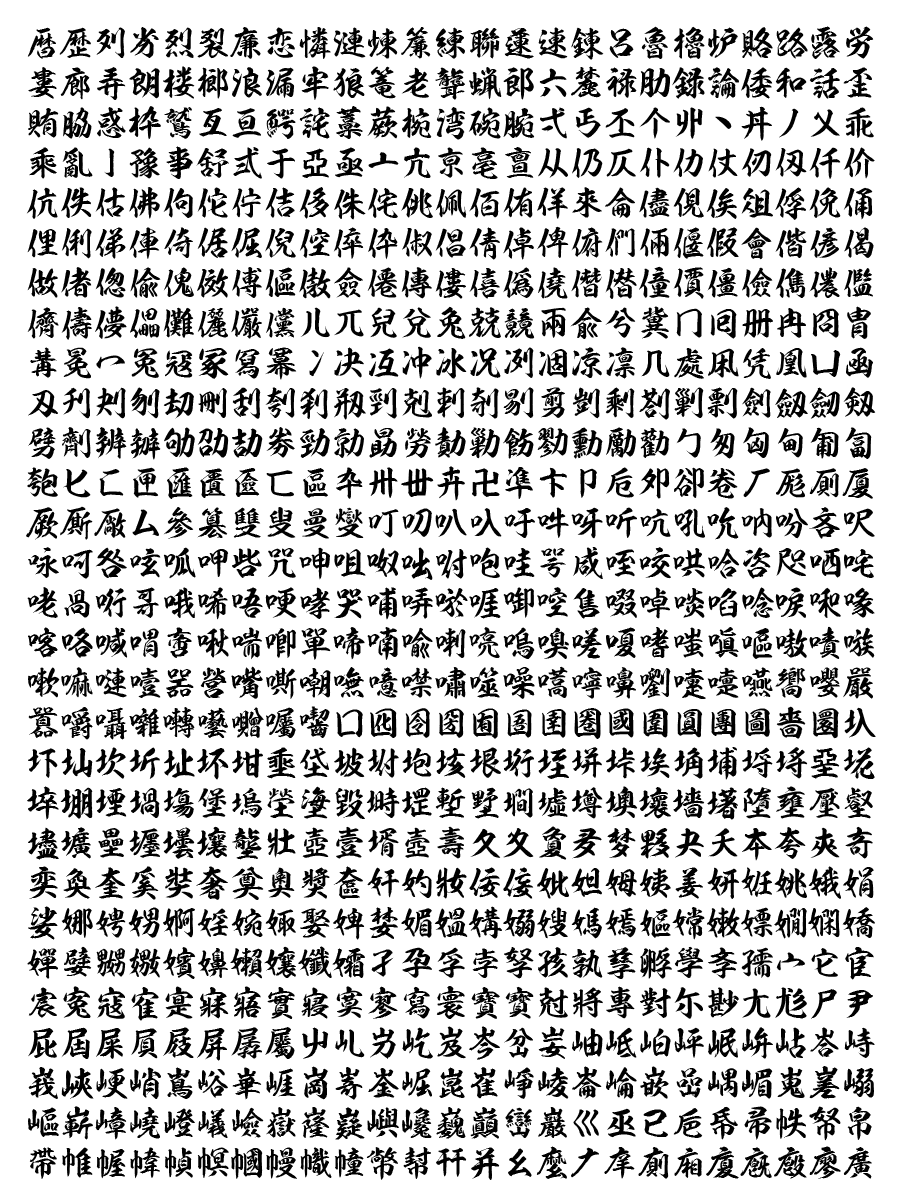 暦歴列劣烈裂廉恋憐漣煉簾練聯蓮連錬呂魯櫓炉賂路露労
婁廊弄朗楼榔浪漏牢狼篭老聾蝋郎六麓禄肋録論倭和話歪
賄脇惑枠鷲亙亘鰐詫藁蕨椀湾碗腕弌丐丕个丱丶丼丿乂乖
乘亂亅豫亊舒弍于亞亟亠亢亰亳亶从仍仄仆仂仗仞仭仟价
伉佚估佛佝佗佇佶侈侏侘佻佩佰侑佯來侖儘俔俟俎俘俛俑
俚俐俤俥倚倨倔倪倥倅伜俶倡倩倬俾俯們倆偃假會偕偐偈
做偖偬偸傀傚傅傴傲僉僊傳僂僖僞僥僭僣僮價僵儉儁儂儖
儕儔儚儡儺儷儼儻儿兀兒兌兔兢竸兩兪兮冀冂囘册冉冏冑
冓冕冖冤冦冢冩冪冫决冱冲冰况冽凅凉凛几處凩凭凰凵凾
刄刋刔刎刧刪刮刳刹剏剄剋剌剞剔剪剴剩剳剿剽劍劔劒剱
劈劑辨辧劬劭劼劵勁勍勗勞勣勦飭勠勳勵勸勹匆匈甸匍匐
匏匕匚匣匯匱匳匸區卆卅丗卉卍凖卞卩卮夘卻卷厂厖厠厦
厥厮厰厶參簒雙叟曼燮叮叨叭叺吁吽呀听吭吼吮吶吩吝呎
咏呵咎呟呱呷呰咒呻咀呶咄咐咆哇咢咸咥咬哄哈咨咫哂咤
咾咼哘哥哦唏唔哽哮哭哺哢唹啀啣啌售啜啅啖啗唸唳啝喙
喀咯喊喟啻啾喘喞單啼喃喩喇喨嗚嗅嗟嗄嗜嗤嗔嘔嗷嘖嗾
嗽嘛嗹噎噐營嘴嘶嘲嘸噫噤嘯噬噪嚆嚀嚊嚠嚔嚏嚥嚮嚶嚴
囂嚼囁囃囀囈囎囑囓囗囮囹圀囿圄圉圈國圍圓團圖嗇圜圦
圷圸坎圻址坏坩埀垈坡坿垉垓垠垳垤垪垰埃埆埔埒埓堊埖
埣堋堙堝塲堡塢塋塰毀塒堽塹墅墹墟墫墺壞墻墸墮壅壓壑
壗壙壘壥壜壤壟壯壺壹壻壼壽夂夊夐夛梦夥夬夭夲夸夾竒
奕奐奎奚奘奢奠奧奬奩奸妁妝佞侫妣妲姆姨姜妍姙姚娥娟
娑娜娉娚婀婬婉娵娶婢婪媚媼媾嫋嫂媽嫣嫗嫦嫩嫖嫺嫻嬌
嬋嬖嬲嫐嬪嬶嬾孃孅孀孑孕孚孛孥孩孰孳孵學斈孺宀它宦
宸寃寇寉寔寐寤實寢寞寥寫寰寶寳尅將專對尓尠尢尨尸尹
屁屆屎屓屐屏孱屬屮乢屶屹岌岑岔妛岫岻岶岼岷峅岾峇峙
峩峽峺峭嶌峪崋崕崗嵜崟崛崑崔崢崚崙崘嵌嵒嵎嵋嵬嵳嵶
嶇嶄嶂嶢嶝嶬嶮嶽嶐嶷嶼巉巍巓巒巖巛巫已巵帋帚帙帑帛
帶帷幄幃幀幎幗幔幟幢幣幇幵并幺麼广庠廁廂廈廐廏廖廣